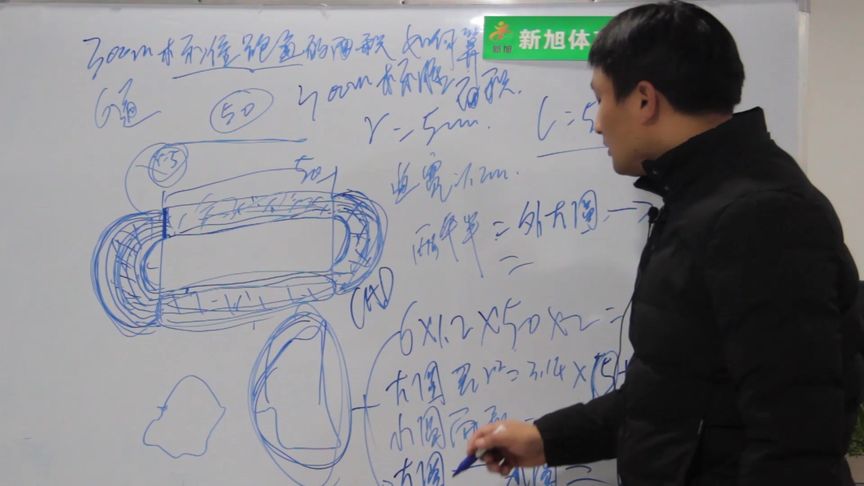 新旭体
新旭
300m标准跑道的面积如何算
6道
50
300m标准
面积.
r=5m.
L=5
r=5
50
道宽1.2m.
两个半=外大圆一
=
6×1.2×50×2=
大圆 πr²=3.14×(5+
小圆面积
大圆一小圆=